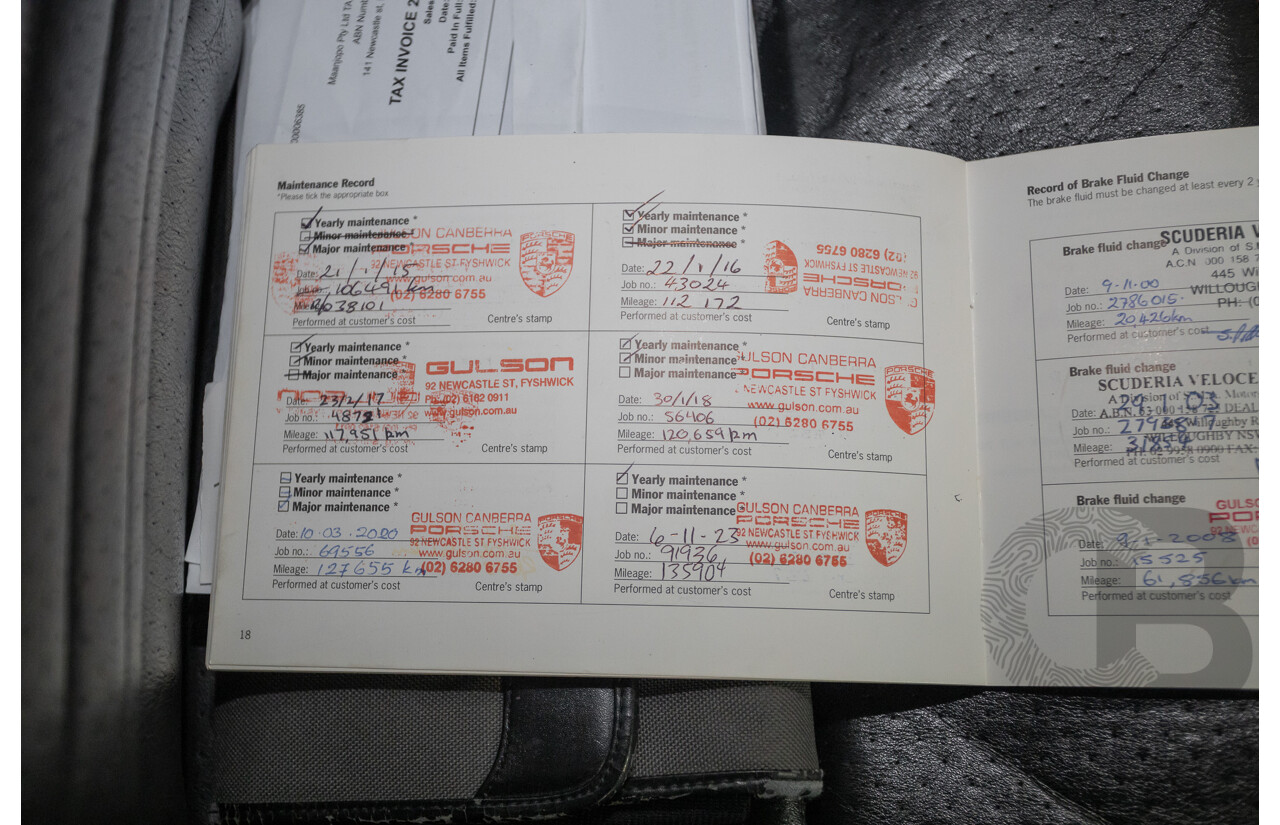 Maanjopo Pty Ltd TA
ABN Numb
141 Newcastle st.
TAX INVOICE 2
Sales
Date:
Paid In Full:
All Items Fulfilled:
00006385
Maintenance Record
*Please tick the appropriate box
Yearly maintenance *
Minor maintenance *
Major maintenance
CANBERRA
PORSCHE
92 NEWCASTLE ST FYSHWICK
www.gulson.com.au
(02) 6280 6755
Date: 21/1/15
106491 km
R/O 38101
Performed at customer's cost
Yearly maintenance *
Minor maintenance *
Major maintenance *
Date: 22/1/16
Job no.: 43024
Mileage: 112 172
Performed at customer's cost
Centre's stamp
(02) 6280 6755
NEWCASTLE ST FYSHWICK
PORSCHE
GULSON CANBERRA
Yearly maintenance *
Minor maintenance *
Major maintenance *
GULSON
92 NEWCASTLE ST, FYSHWICK
Ph: (02) 6162 0911
www.gulson.com.au
Date: 23/2/17
Job no.: 48721
Mileage: 117,951 km
Performed at customer's cost
Centre's stamp
Yearly maintenance *
Minor maintenance *
Major maintenance
GULSON CANBERRA
PORSCHE
NEWCASTLE ST, FYSHWICK
www.gulson.com.au
(02) 6280 6755
PORSCHE
Date: 30/1/18
Job no.: 56406
Mileage: 120,659 km
Performed at customer's cost
Centre's stamp
Yearly maintenance *
Minor maintenance *
Major maintenance
GULSON CANBERRA
PORSCHE
92 NEWCASTLE ST FYSHWICK
www.gulson.com.au
(02) 6280 6755
Date: 10.03.2020
Job no.: 69556
Mileage: 127655 km
Performed at customer's cost
Centre's stamp
Yearly maintenance *
Minor maintenance *
Major maintenance
GULSON CANBERRA
PORSCHE
92 NEWCASTLE ST, FYSHWICK
www.gulson.com.au
(02) 6280 6755
Date: 6-11-23
Job no.: 91936
Mileage: 135904
Performed at customer's cost
Centre's stamp
18
Record of Brake Fluid Change
The brake fluid must be changed at least every 2 y
Brake fluid change
SCUDERIA V
A Division of S.
A.C.N 000 158 7
445 Wi
WILLOUGH
PH: (0
Date: 9.11.00
Job no.: 2786015.
Mileage: 20426km
Performed at customer's cost
Brake fluid change
SCUDERIA VELOCE
A Division of Motor
DEAL
Willoughby R
WILLOUGHBY NSW
FAX:
Date:
Job no.:
Mileage:
Performed at customer's cost
Brake fluid change
GULSO
Date: 9.1.2008
Job no.: 15525
Mileage: 61,856km
Performed at customer's cost
CB